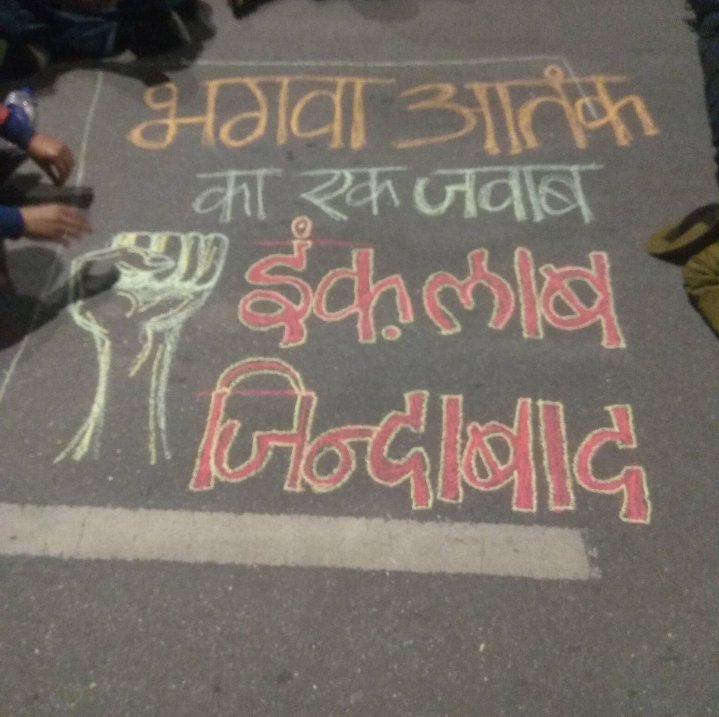 भगवा आतंक
का एक जवाब
इंक़लाब
जिन्दाबाद